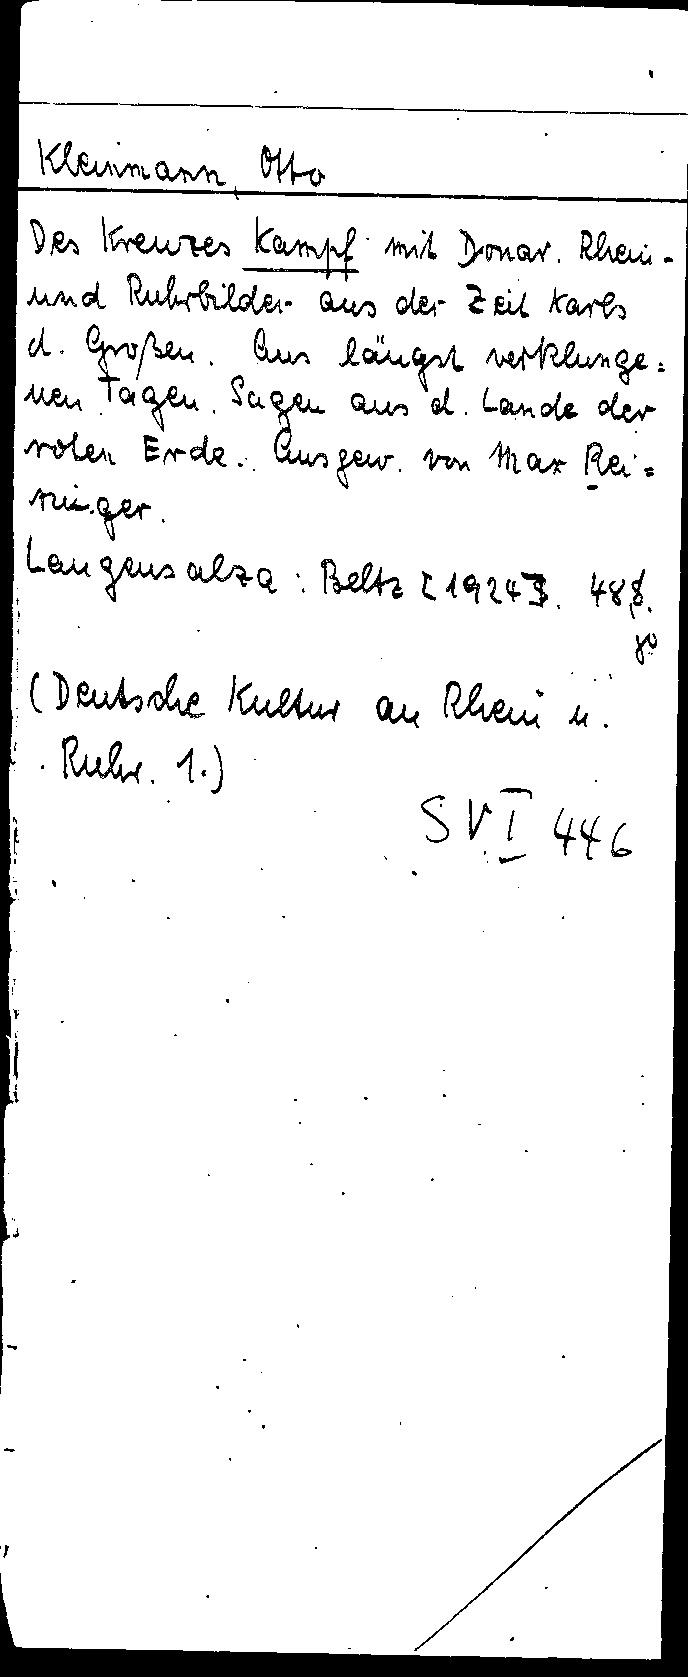 Kleinmann, Otto
Des Kreuzes Kampf mit Donar. Rhein-
und Ruhrbilder aus der Zeit Karls
d. Großen. Aus längst verklunge=
nen Tagen. Sagen aus d. Lande der
roten Erde. Ausgew. von Max Rei=
niger.
Langensalza: Beltz [1924]. 48 S.
8°
(Deutsche Kultur an Rhein u.
Ruhr. 1.)
SV I 446